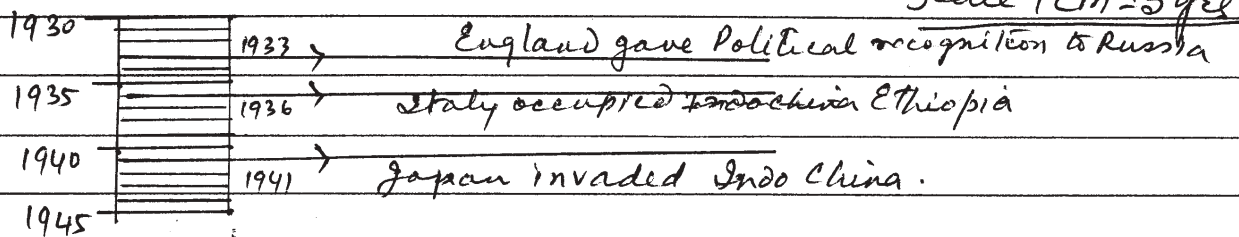 Scale 1cm = 5 yrs
1930
1933 England gave Political recognition to Russia
1935
1936 Italy occupied Indochina Ethiopia
1940
1941 Japan invaded Indo China.
1945